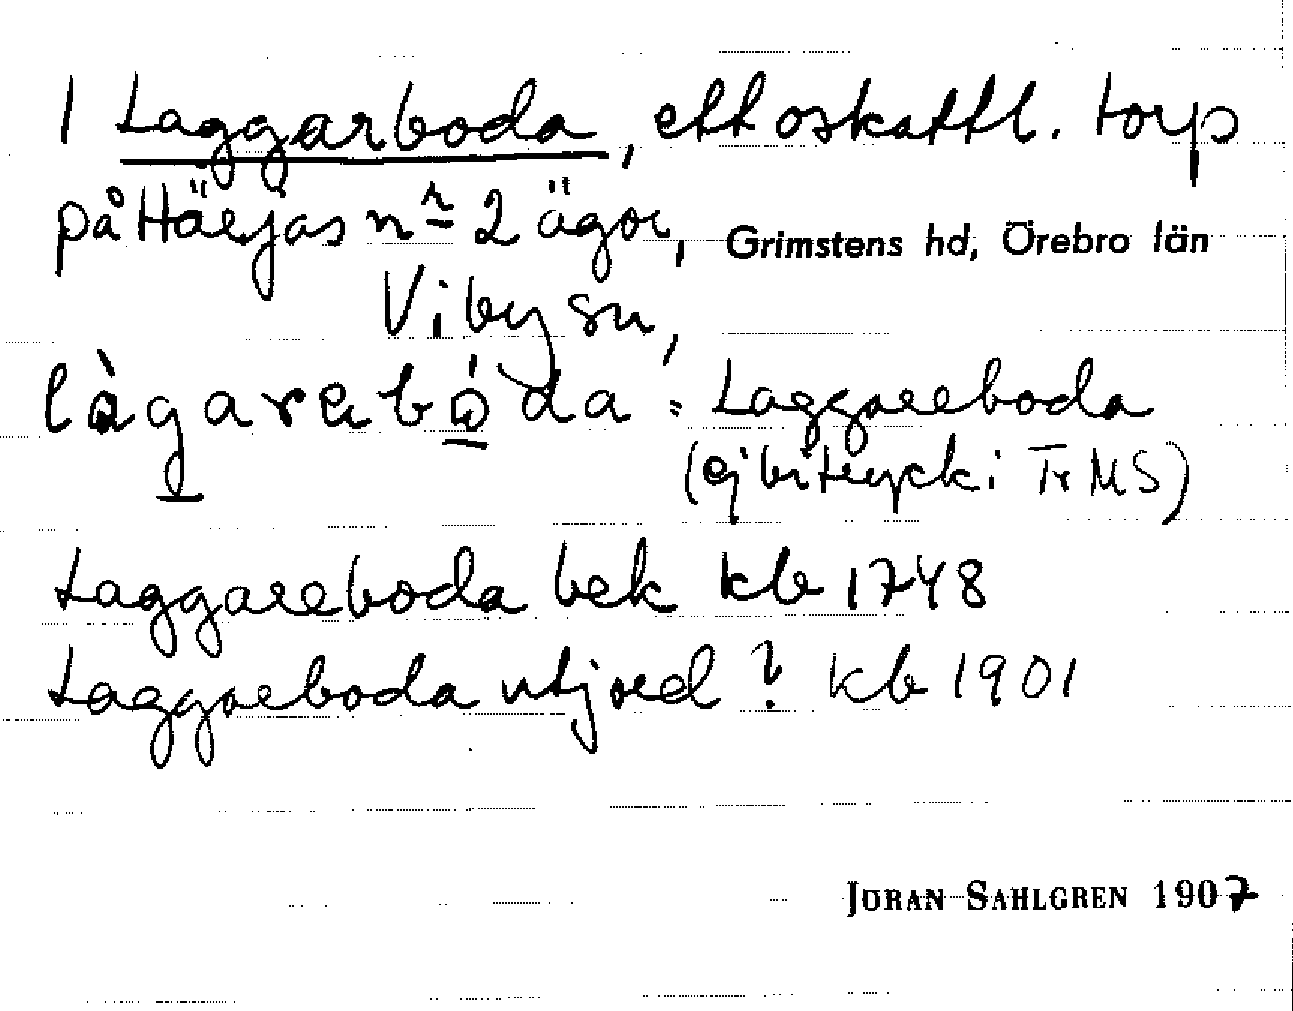 1 Laggarboda, ett oskattl. torp
på Härjas nr 2 ägor, Grimstens hd, Örebro län
Viby sn,
làgarebó̱da : Laggareboda
(ej uttryck i Tr MS)
Laggareboda bek kb 1748
Laggareboda utjord ? kb 1901
JÖRAN SAHLGREN 1907